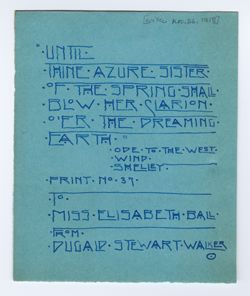 "·UNTIL·
·THINE·AZURE·SISTER·
·OF·THE·SPRING·SHALL·
·BLOW·HER·CLARION·
·O'ER·THE·DREAMING·
·EARTH·"
·ODE·TO·THE·WEST·
·WIND·
·SHELLEY·
·PRINT·NO·37·
·TO·
·MISS·ELISABETH·BALL·
·FROM·
·DUGALD·STEWART·WALKER·